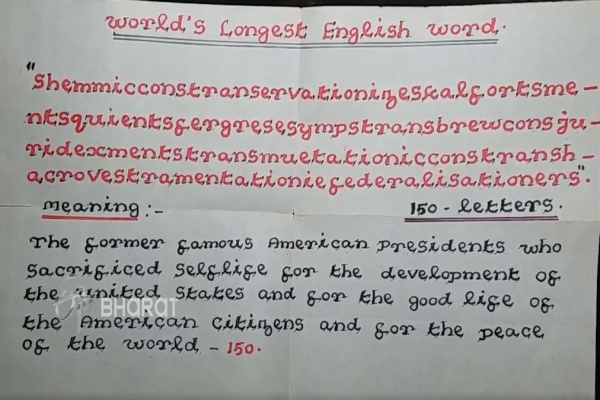 World's Longest English word.
"Shemmicconstranservationizeskalfortsme-
ntsquientsfergresesympstransbrewconsju-
ridexmentstransmuetationiicconstransh-
acrovestramentationiefederalisationers".
Meaning :-
150 - letters.
The former famous American Presidents who
sacrificed selflife for the development of
the united states and for the good life of
the American citizens and for the peace
of the world - 150.
BHARAT